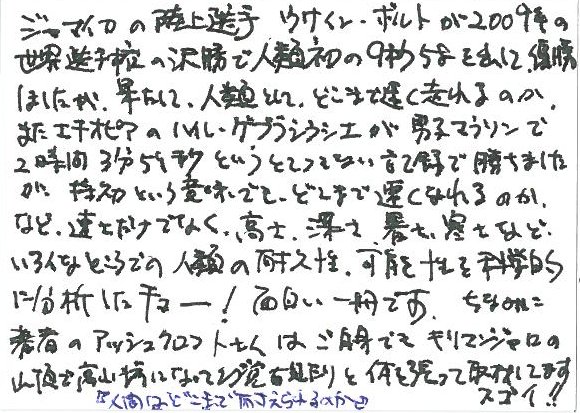 ジャマイカの陸上選手 ウサイン・ボルトが2009年の
世界選手権の決勝で人類初の9秒5台を出して、優勝
はしたが、果たして、人類として、どこまで速く走れるのか、
またエチオピアのハイレ・ゲブラシラシエが男子マラソンで
2時間3分59秒というとてつもない記録で勝ちました
が、持久力という意味でも、どこまで速くなれるのか、
など、速さだけでなく、高さ、深さ、暑さ、寒さなど、
いろんなところでの人類の耐久性、可能性を科学的
に分析したチョー！面白い一冊です。ちなみに
著者のアッシュクロフトさんはご自身でもキリマンジャロの
山頂で高山病になって幻覚を見たりと体を張って取材してます
スゴイ!!
『人間はどこまで耐えられるのか』